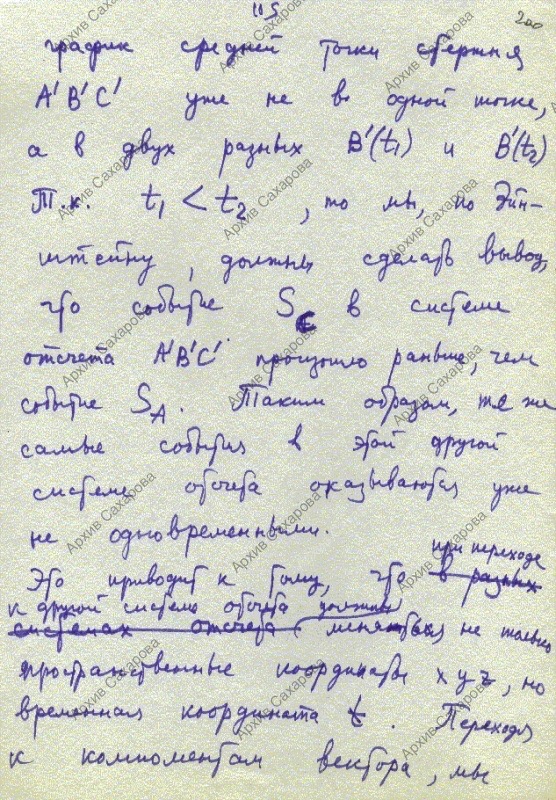 115
200
график средней точки стержня
A'B'C' уже не в одной точке,
а в двух разных B'(t₁) и B'(t₂)
Т.к. t₁ < t₂, то мы, по Эйн-
штейну, должны сделать вывод,
что событие S_C в системе
отсчета A'B'C' произошло раньше, чем
событие S_A. Таким образом, те же
самые события в этой другой
системе отсчета оказываются уже
не одновременными.
при переходе
Это приводит к тому, что в разных
к другой системе отсчета должны
системах отсчета меняться не только
пространственные координаты x y z, но
временная координата t. Переходя
к компонентам вектора, мы
Архив Сахарова